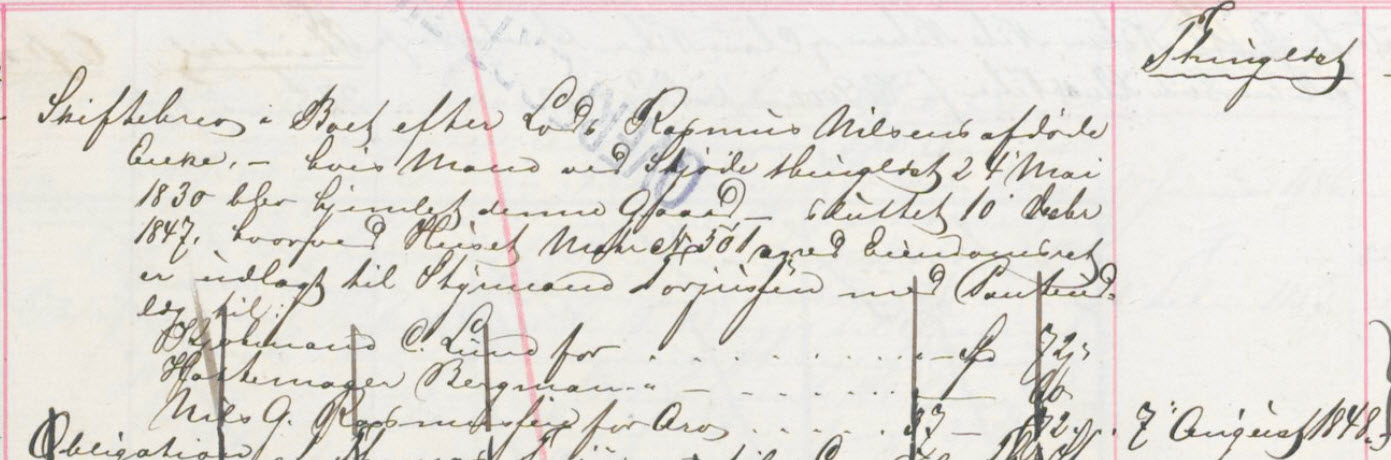 Thinglæst
Skiftebrev i Boet efter Lods Rasmus Nilsens afdøde
Enke, – hvis Mand ved Skjøde thinglæst 24' Mai
1830 blev hjemlet denne Gaard – sluttet 10' Decbr
1847, hvorved Huset Matr. № 501 med Eiendomsret
er udlagt til Styrmand Torjussen med Pantud-
læg til:
Kjøbmand C. Lund for . . . . . . . . . – 72
Hattemager Bergman " – . . . . . .
Nils G. Rasmussen for Arv . . . . . . 37 – 7' August 1848.
Obligation